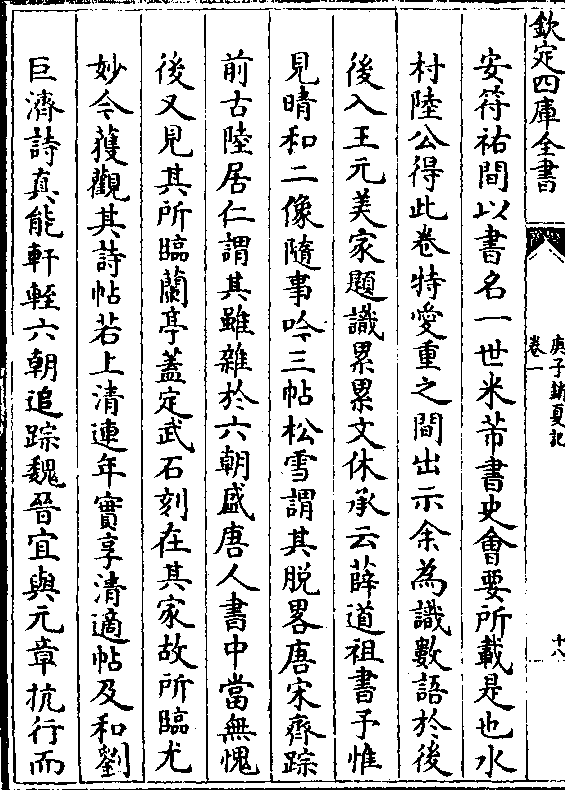 欽定四庫全書
庚子銷夏記
卷一
十八
安符祐間以書名一世米芾書史會要所載是也水
村陸公得此卷特愛重之間出示余為識數語於後
後入王元美家題識累累文休承云薛道祖書予惟
見晴和二像隨事吟三帖松雪謂其脱畧唐宋齊踪
前古陸居仁謂其雖雜於六朝盛唐人書中當無愧
後又見其所臨蘭亭蓋定武石刻在其家故所臨尤
妙今䕶觀其詩帖若上清連年實享清適帖及和劉
巨濟詩真能軒輊六朝追踪魏晉宜與元章抗行而